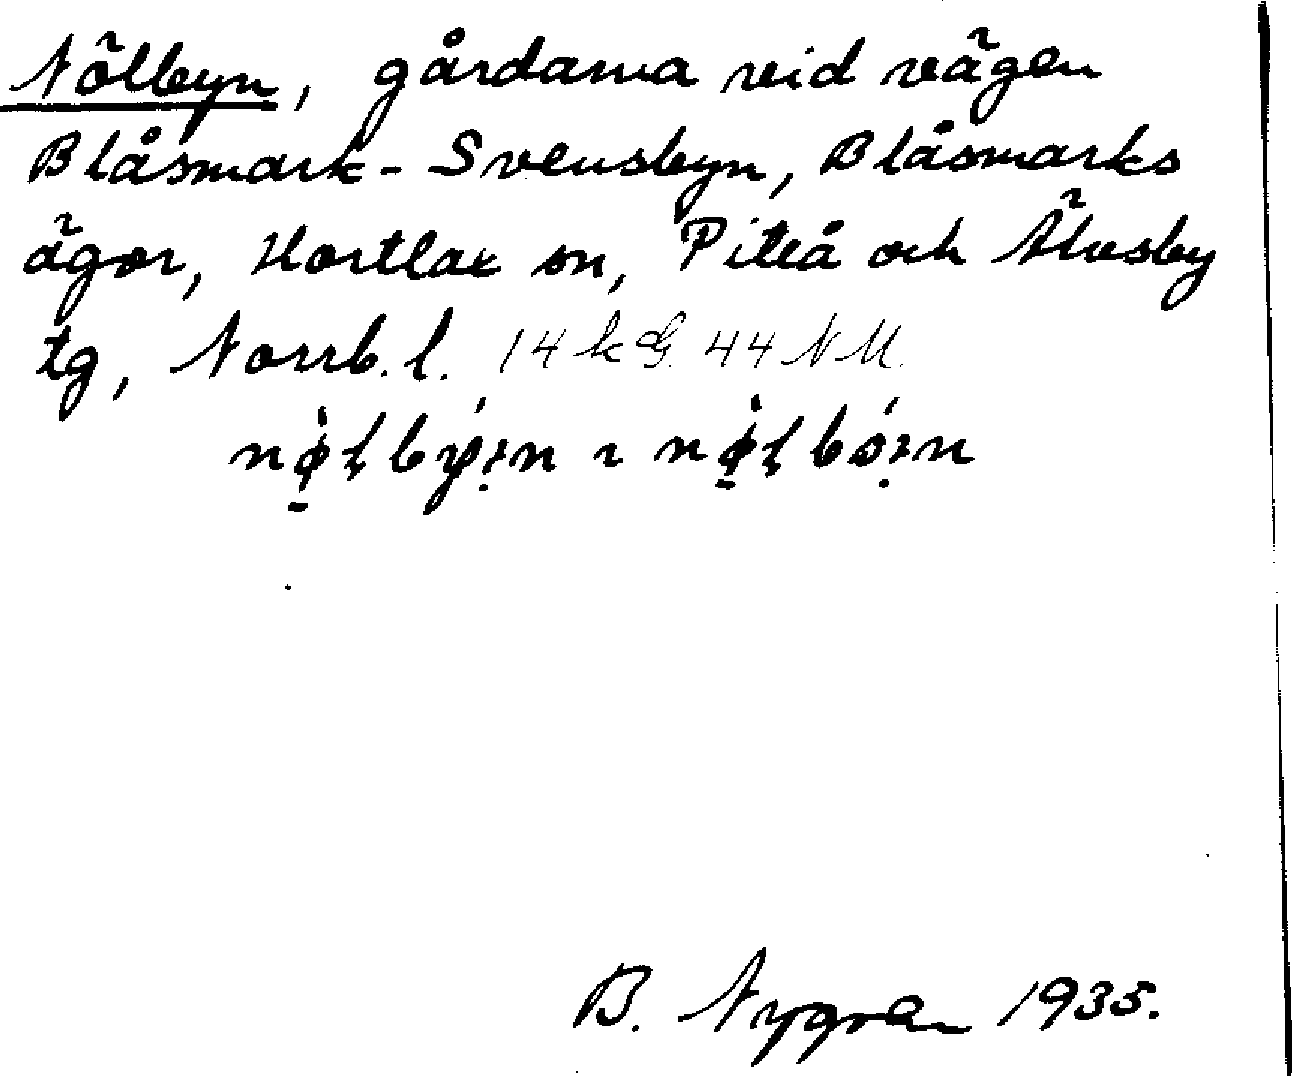 Nölbyn, gårdarna vid vägen
Blåsmark - Svensbyn, Blåsmarks
ägor, Hortlax sn, Piteå och Älvsby
tg, Norrb. l. 14 k G. 44 NM.
B. Nygren 1935.